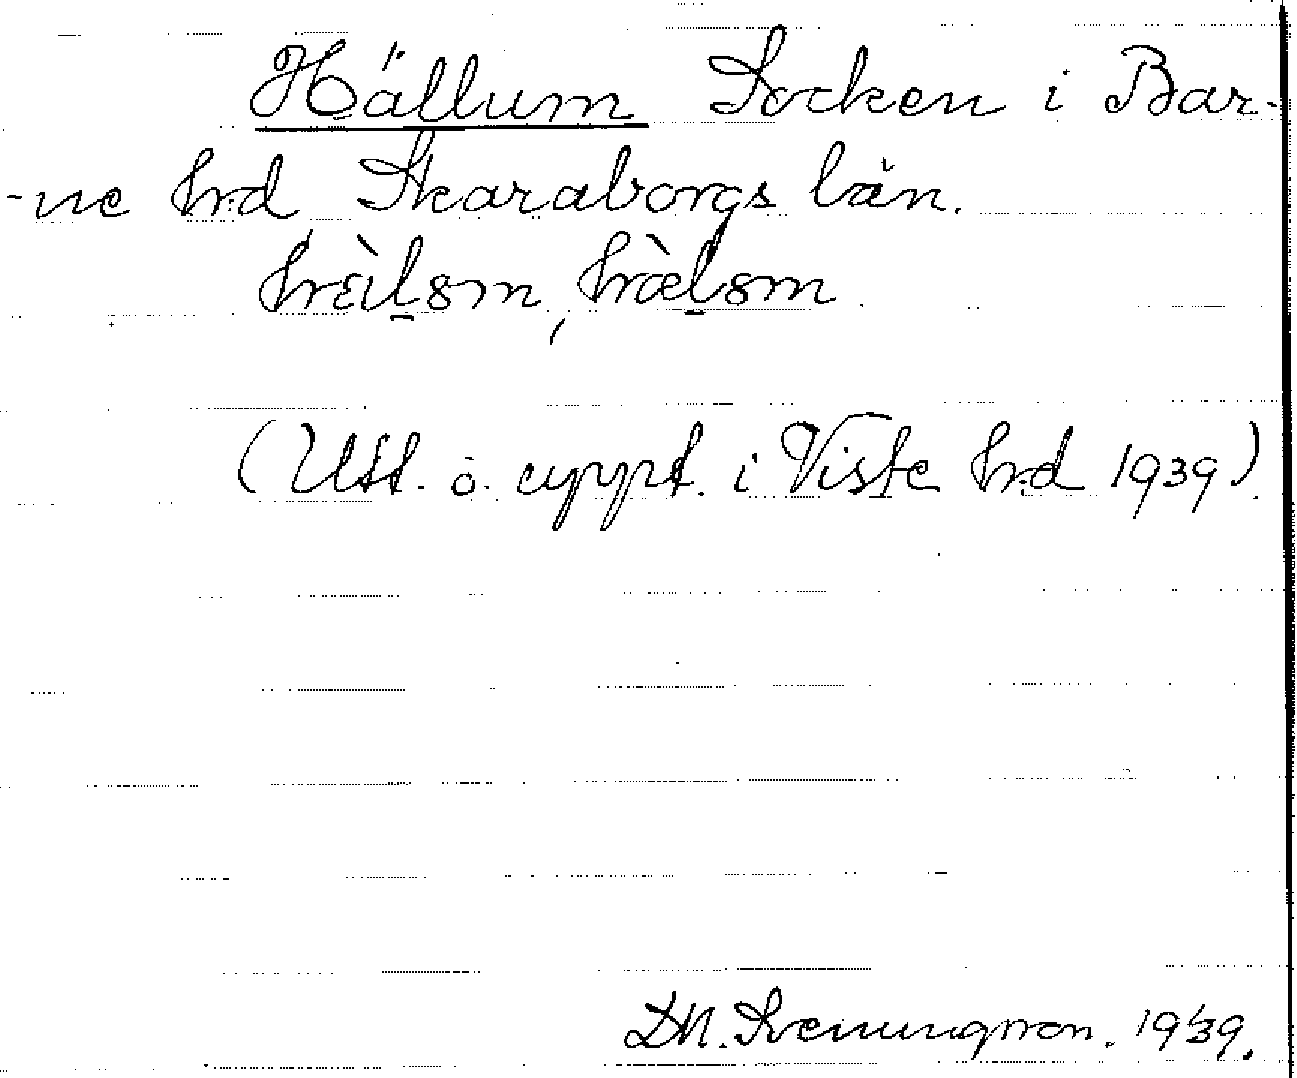 Hällum Socken i Bar-
-ne hrd Skaraborgs län.
(Utt. o. uppt. i Viste hrd 1939).
D.N. Svenungsson. 1939.